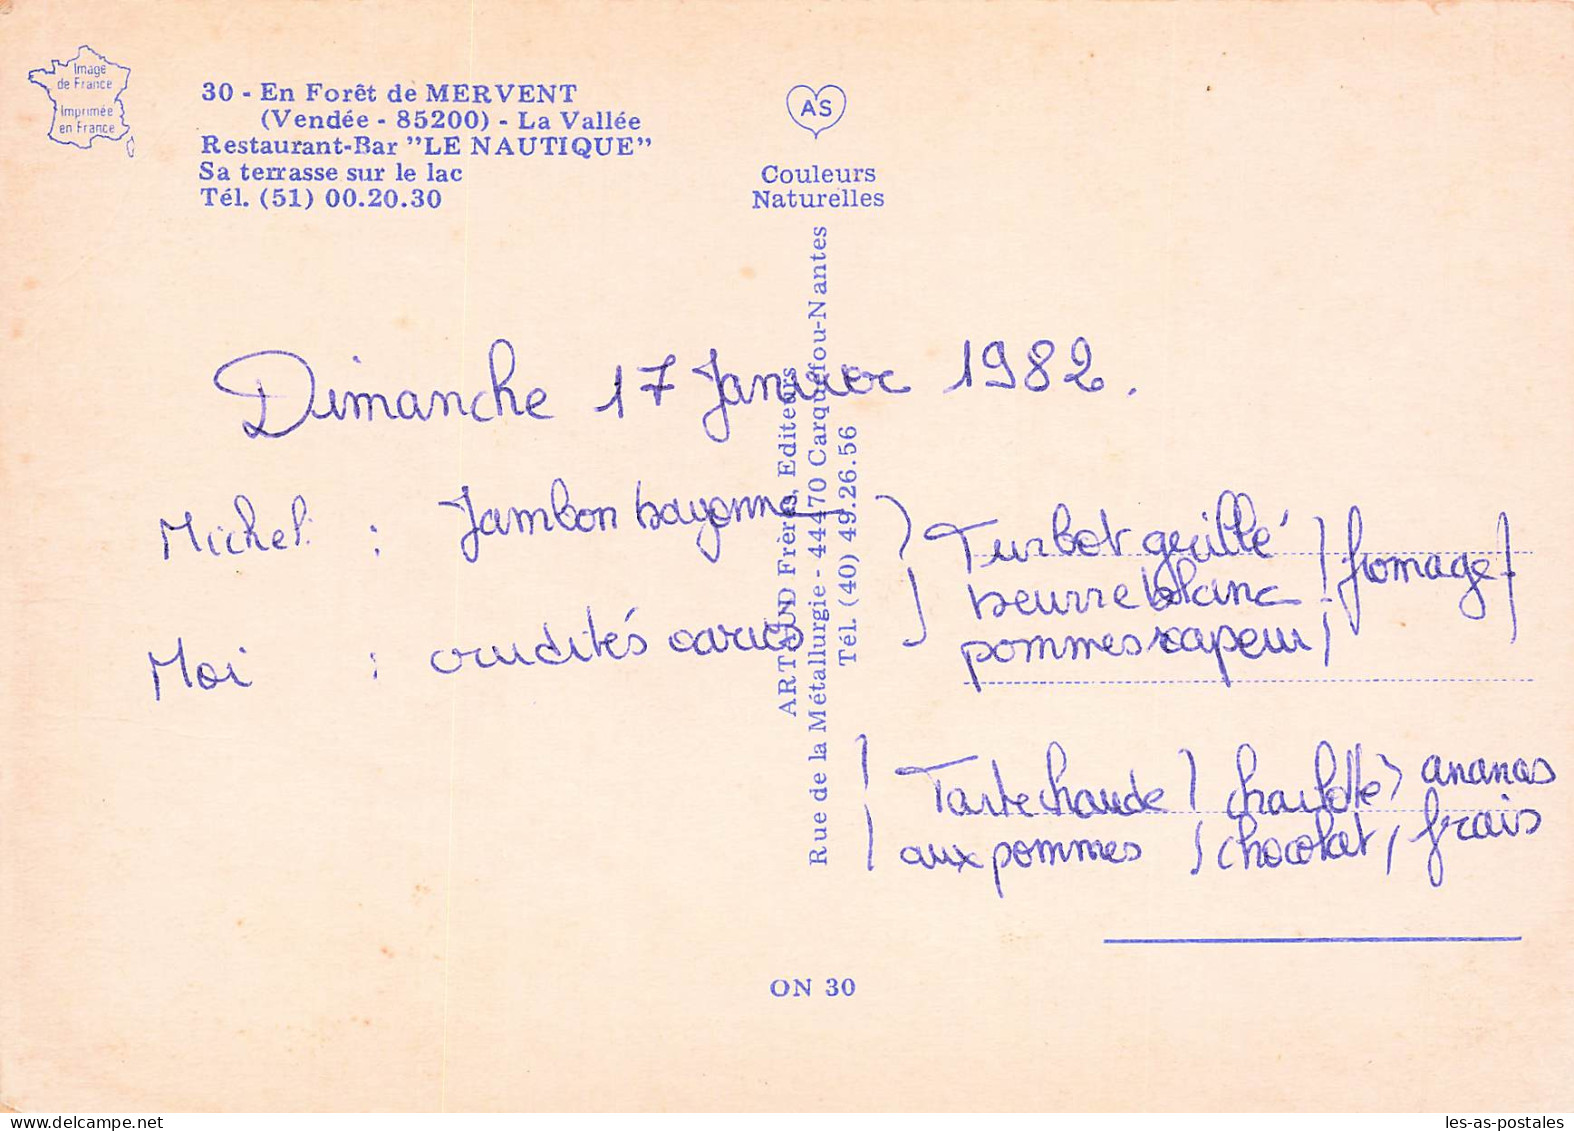 Image
de France
Imprimée
en France
30 - En Forêt de MERVENT
(Vendée - 85200) - La Vallée
Restaurant-Bar "LE NAUTIQUE"
Sa terrasse sur le lac
Tél. (51) 00.20.30
AS
Couleurs
Naturelles
ARTAUD Frères, Editeurs
Rue de la Métallurgie - 44470 Carquefou-Nantes
Tél. (40) 49.26.56
Dimanche 17 Janvier 1982.
Michel : Jambon bayonne
Moi : crudités
Turbot grillé
beurre blanc
pommes vapeur
fromage
Tarte chaude
aux pommes
charlotte
chocolat
ananas
frais
ON 30
delcampe.net
les-as-postales